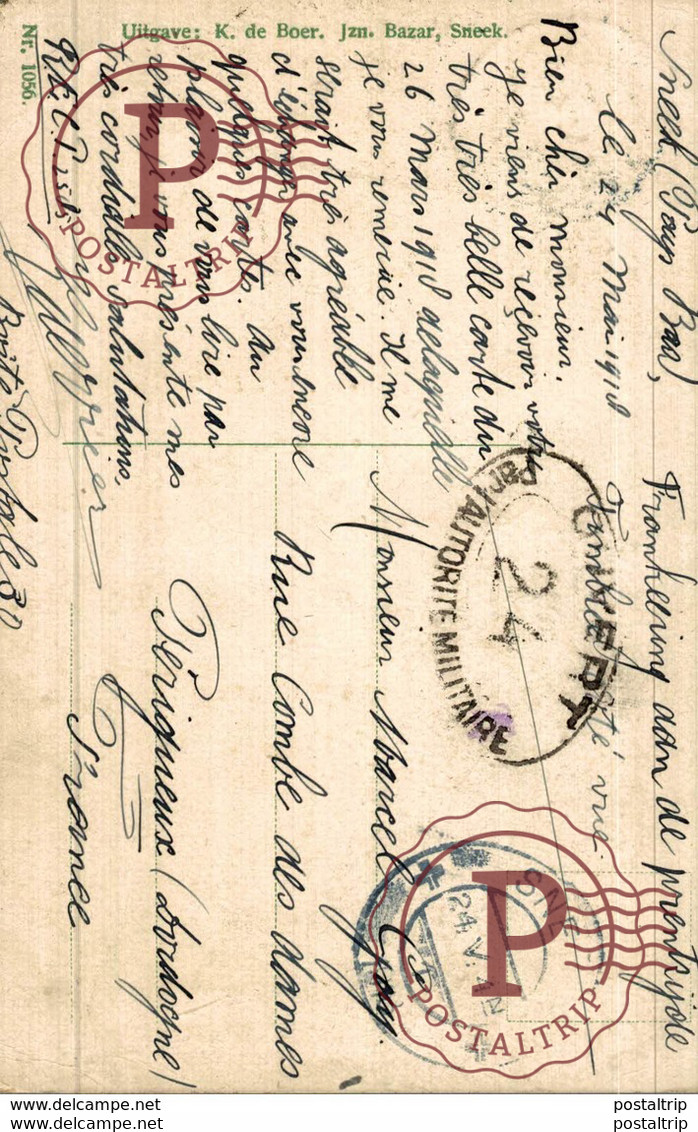 Uitgave: K. de Boer. Jzn. Bazar, Sneek.
Nr. 1056.
Sneek (Pays Bas),
le 24 Mai 1918
Bien cher monsieur,
Je viens de reçevoir votre
très très belle carte du
26 Mars 1918 de laquelle
je vous remercie. Il me
serait très agréable
d'échanger avec vous encore
quelques cartes. Au
plaisir de vous lire par
retour, je vous présente mes
très cordiales salutations.
Boîte Postale 30
Frankeering aan de prentzijde
Timbre côté vue
OUVERT
L'AUTORITE MILITAIRE
24
Monsieur Marcel
Rue Combe des dames
Périgueux (Dordogne)
France
SNEEK
24.V.
P
POSTALTRIP
P
POSTALTRIP
postaltrip postaltrip
postaltrip postaltrip